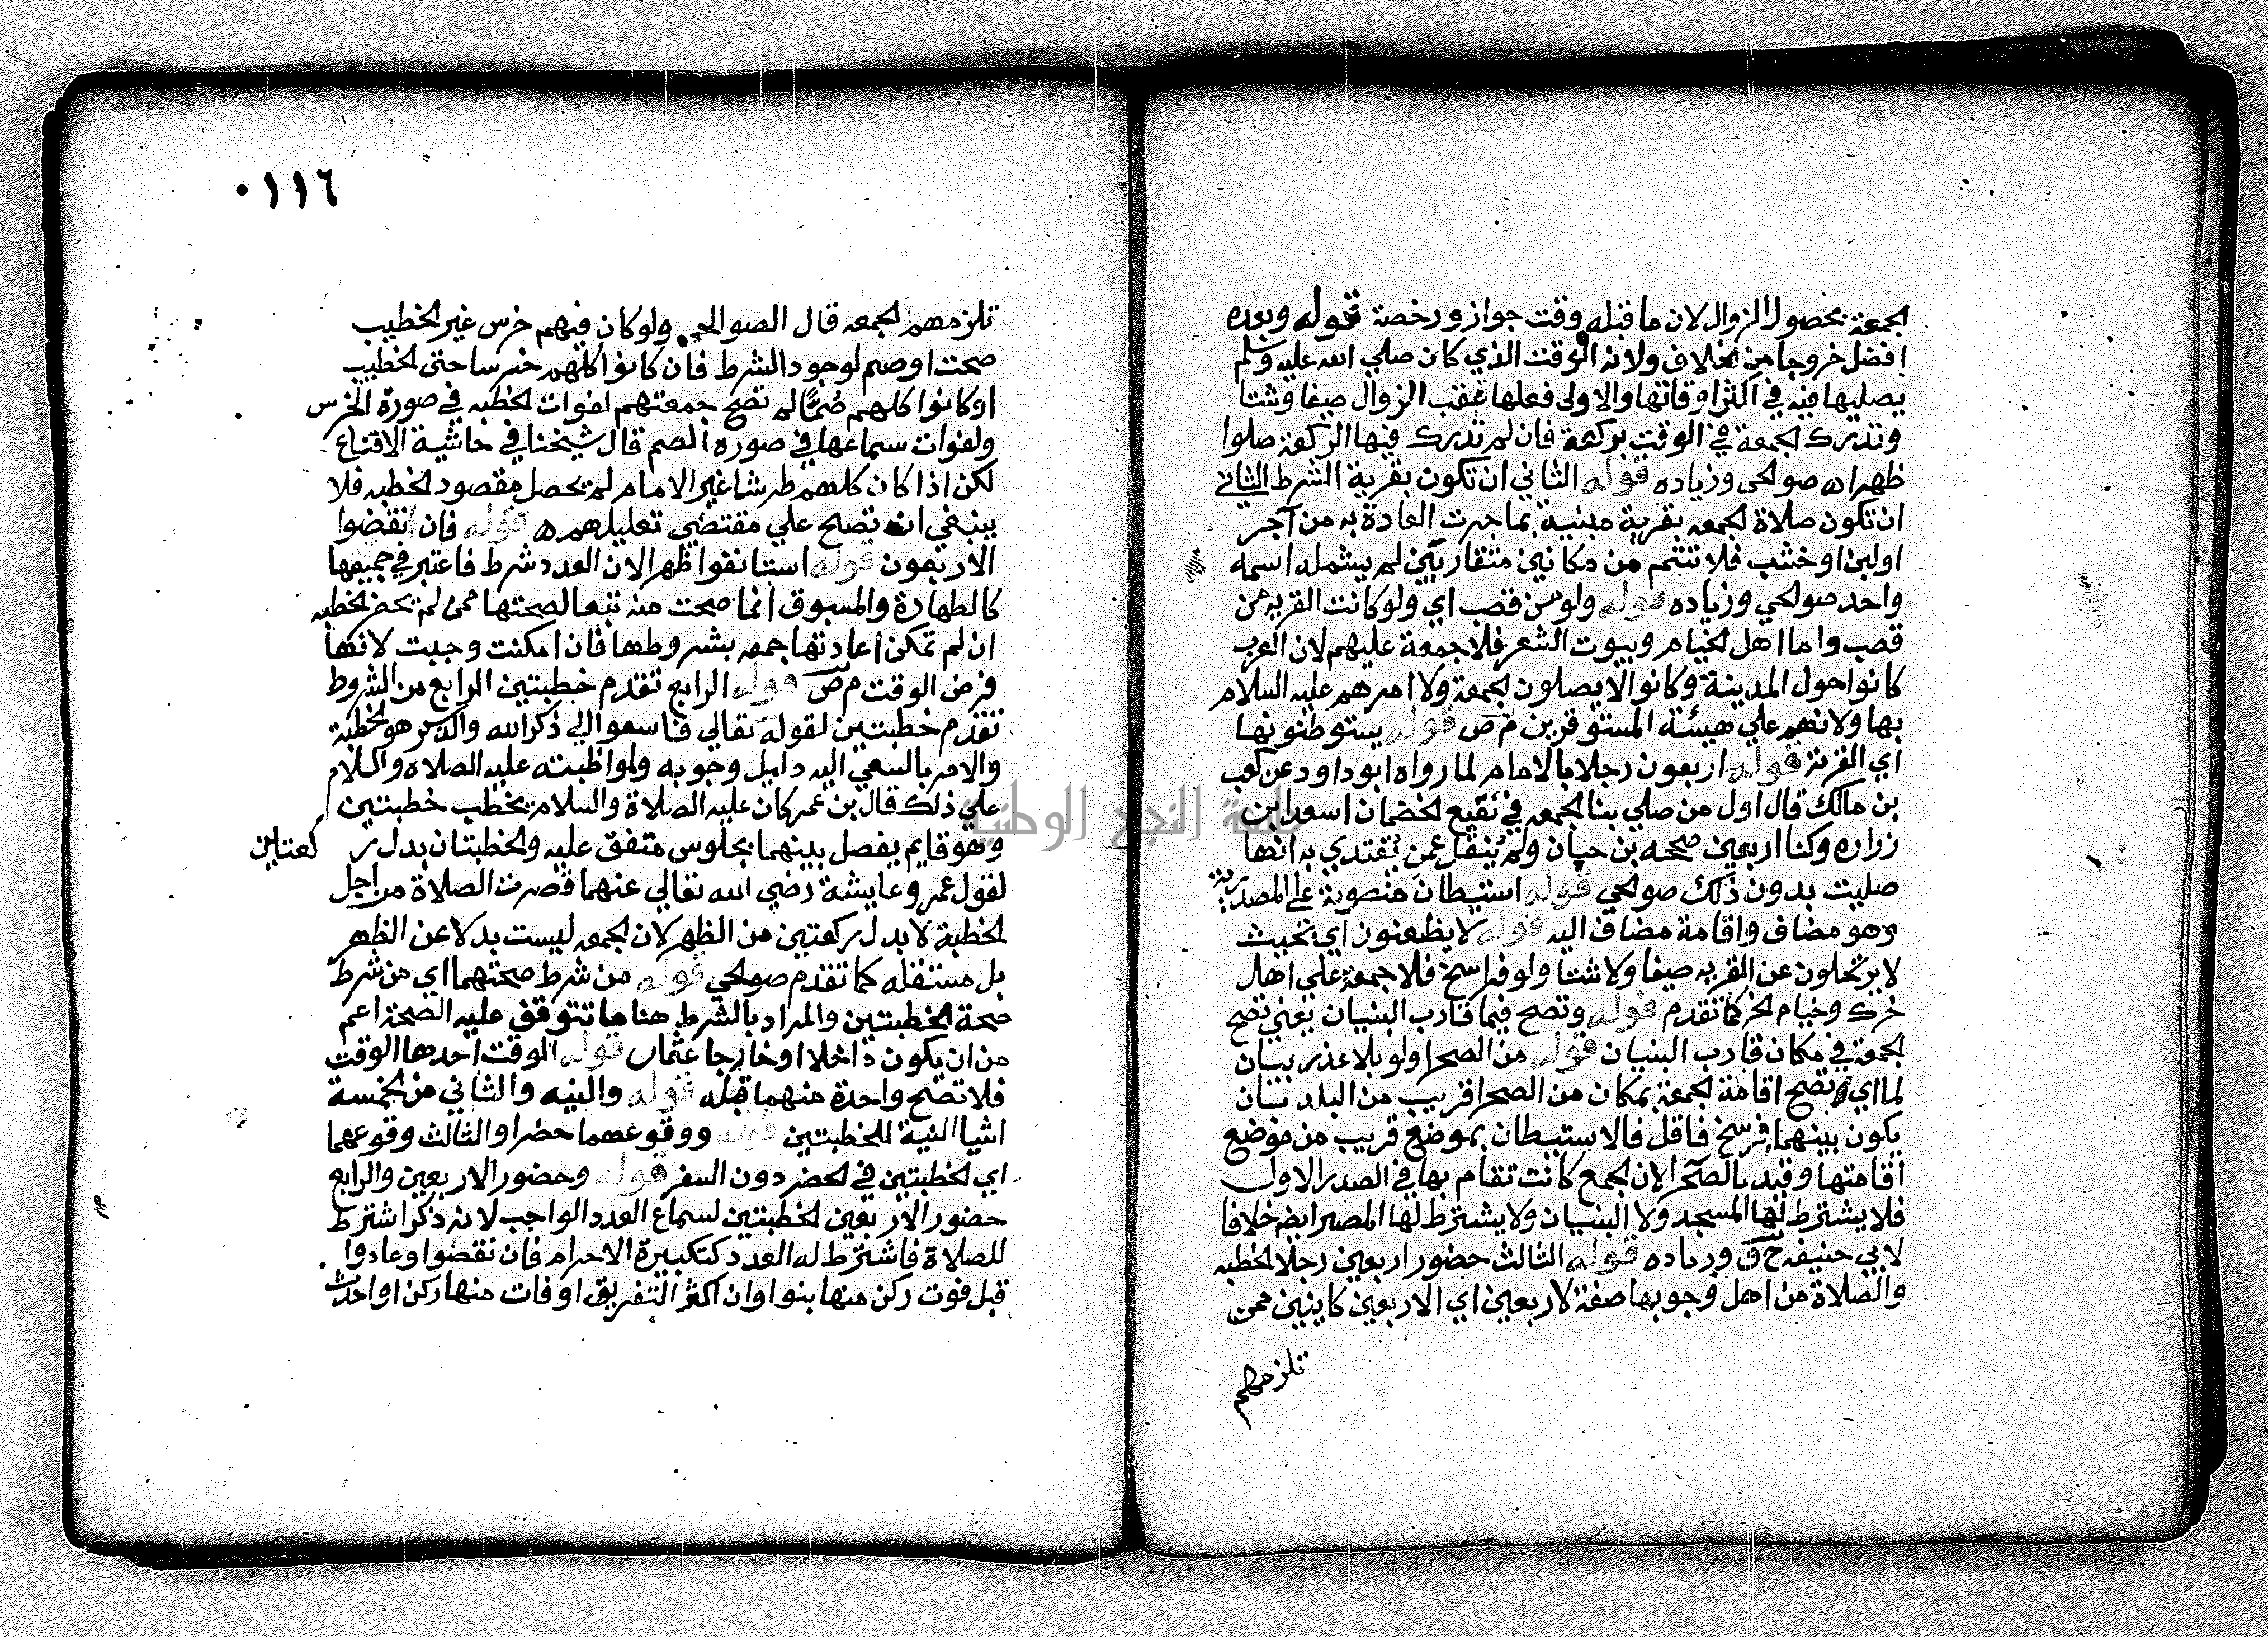 الجمعة بحصول الزوال لان ما قبله وقت جواز ورخصة قوله وبعده
افضل خروجا من الخلاف ولانه الوقت الذي كان صلي الله عليه وسلم
يصليها فيه في اكثر اوقاتها والاولى فعلها عقب الزوال صيفا وشتا
وتدرك الجمعة في الوقت بركعة فان لم تدرك فيها الركعة صلوا
ظهرا اه صوالحى وزياده قوله الثاني ان تكون بقرية الشرط الثاني
ان تكون صلاة الجمعه بقرية مبنية بما جرت العادة به من آجر
اولبن او خشب فلا تتم من مكانين متقاربين لم يشمله اسمه
واحد صوالحي وزياده قوله ولو من قصب اي ولو كانت القريه من
قصب واما اهل الخيام وبيوت الشعر فلا جمعة عليهم لان العرب
كانوا حول المدينة وكانوا لا يصلون الجمعة ولا امرهم عليه السلام
بها ولانهم علي هيئة المستوفزين م ص قوله يستوطنونها
اي القرية قوله اربعون رجلا بالامام لما رواه ابو داود عن كعب
بن مالك قال اول من صلي بنا الجمعه في نقيع الخضمان اسعد ابن
زراره وكنا اربعين صححه بن حبان ولم ينقل عمن يقتدي به انها
صليت بدون ذلك صوالحي قوله استيطان منصوبة علي المصدرية
وهو مضاف واقامة مضاف اليه قوله لا يظعنون اي بحيث
لا يرتحلون عن القريه صيفا ولا شتا ولو فراسخ فلا جمعة علي اهل
خرك وخيام الخ كما تقدم قوله وتصح فيما قارب البنيان يعني تصح
الجمعة في مكان قارب البنيان قوله من الصحرا ولو بلا عذر بيان
لما اي تصح اقامة الجمعة بمكان من الصحرا قريب من البلد بان
يكون بينهما فرسخ فاقل فالاستيطان بموضع قريب من موضع
اقامتها وقيد بالصحرا لان الجمع كانت تقام بها في الصدر الاول
فلا يشترط لها المسجد ولا البنيان ولا يشترط لها المصر ايضا خلافا
لابي حنيفه ح ق وزياده قوله الثالث حضور اربعين رجلا الخطبه
والصلاة من اهل وجوبها صفة لاربعين اي الاربعين كاينين ممن
تلزمهم
٠١١٦
تلزمهم الجمعه قال الصوالحي ولو كان فيهم خرس غير الخطيب
صحت اوصم لوجود الشرط فان كانوا كلهم خرسا حتى الخطيب
او كانوا كلهم صُمًّا لم تصح جمعتهم لفوات الخطبه في صورة الخرس
ولفوات سماعها في صورة الصم قال شيخنا في حاشية الاقناع
لكن اذا كان كلهم طرشا غير الامام لم يحصل مقصود الخطبه فلا
ينبغي ان تصح علي مقتضي تعليلهم ه قوله فان انفضوا
الاربعون قوله استانفوا ظهرا لان العدد شرط فاعتبر في جميعها
كالطهارة والمسبوق انما صحت منه تبعا لصحتها ممن لم يحضر الخطبه
ان لم تمكن اعادتها جمعه بشروطها فان امكنت وجبت لانها
فرض الوقت م ص قوله الرابع تقدم خطبتين الرابع من الشروط
تقدم خطبتين لقوله تعالي فاسعوا الي ذكر الله والذكر هو الخطبة
والامر بالسعي اليه دليل وجوبه ولمواظبته عليه الصلاة والسلام
علي ذلك قال بن عمر كان عليه الصلاة والسلام يخطب خطبتين
وهو قايم يفصل بينهما بجلوس متفق عليه والخطبتان بدل ركعتاين
لقول عمر وعايشة رضي الله تعالي عنهما قصرت الصلاة من اجل
الخطبة لا بدل ركعتين من الظهر لان الجمعه ليست بدلا عن الظهر
بل مستقله كما تقدم صوالحي قوله من شرط صحتهما اي من شرط
صحة الخطبتين والمراد بالشرط هنا ما تتوقف عليه الصحة اعم
من ان يكون داخلا او خارجا عثمان قوله الوقت احدها الوقت
فلا تصح واحدة منهما قبله قوله والنيه والثاني من الخمسة
اشيا النية للخطبتين قوله ووقوعهما حضرا والثالث وقوعهما
اي الخطبتين في الحضر دون السفر قوله وحضور الاربعين والرابع
حضور الاربعين الخطبتين لسماع العدد الواجب لانه ذكر اشترط
للصلاة فاشترط له العدد كتكبيرة الاحرام فان نقصوا وعادوا
قبل فوت ركن منها بنوا وان اكثر التفريق او فات منها ركن او احدث